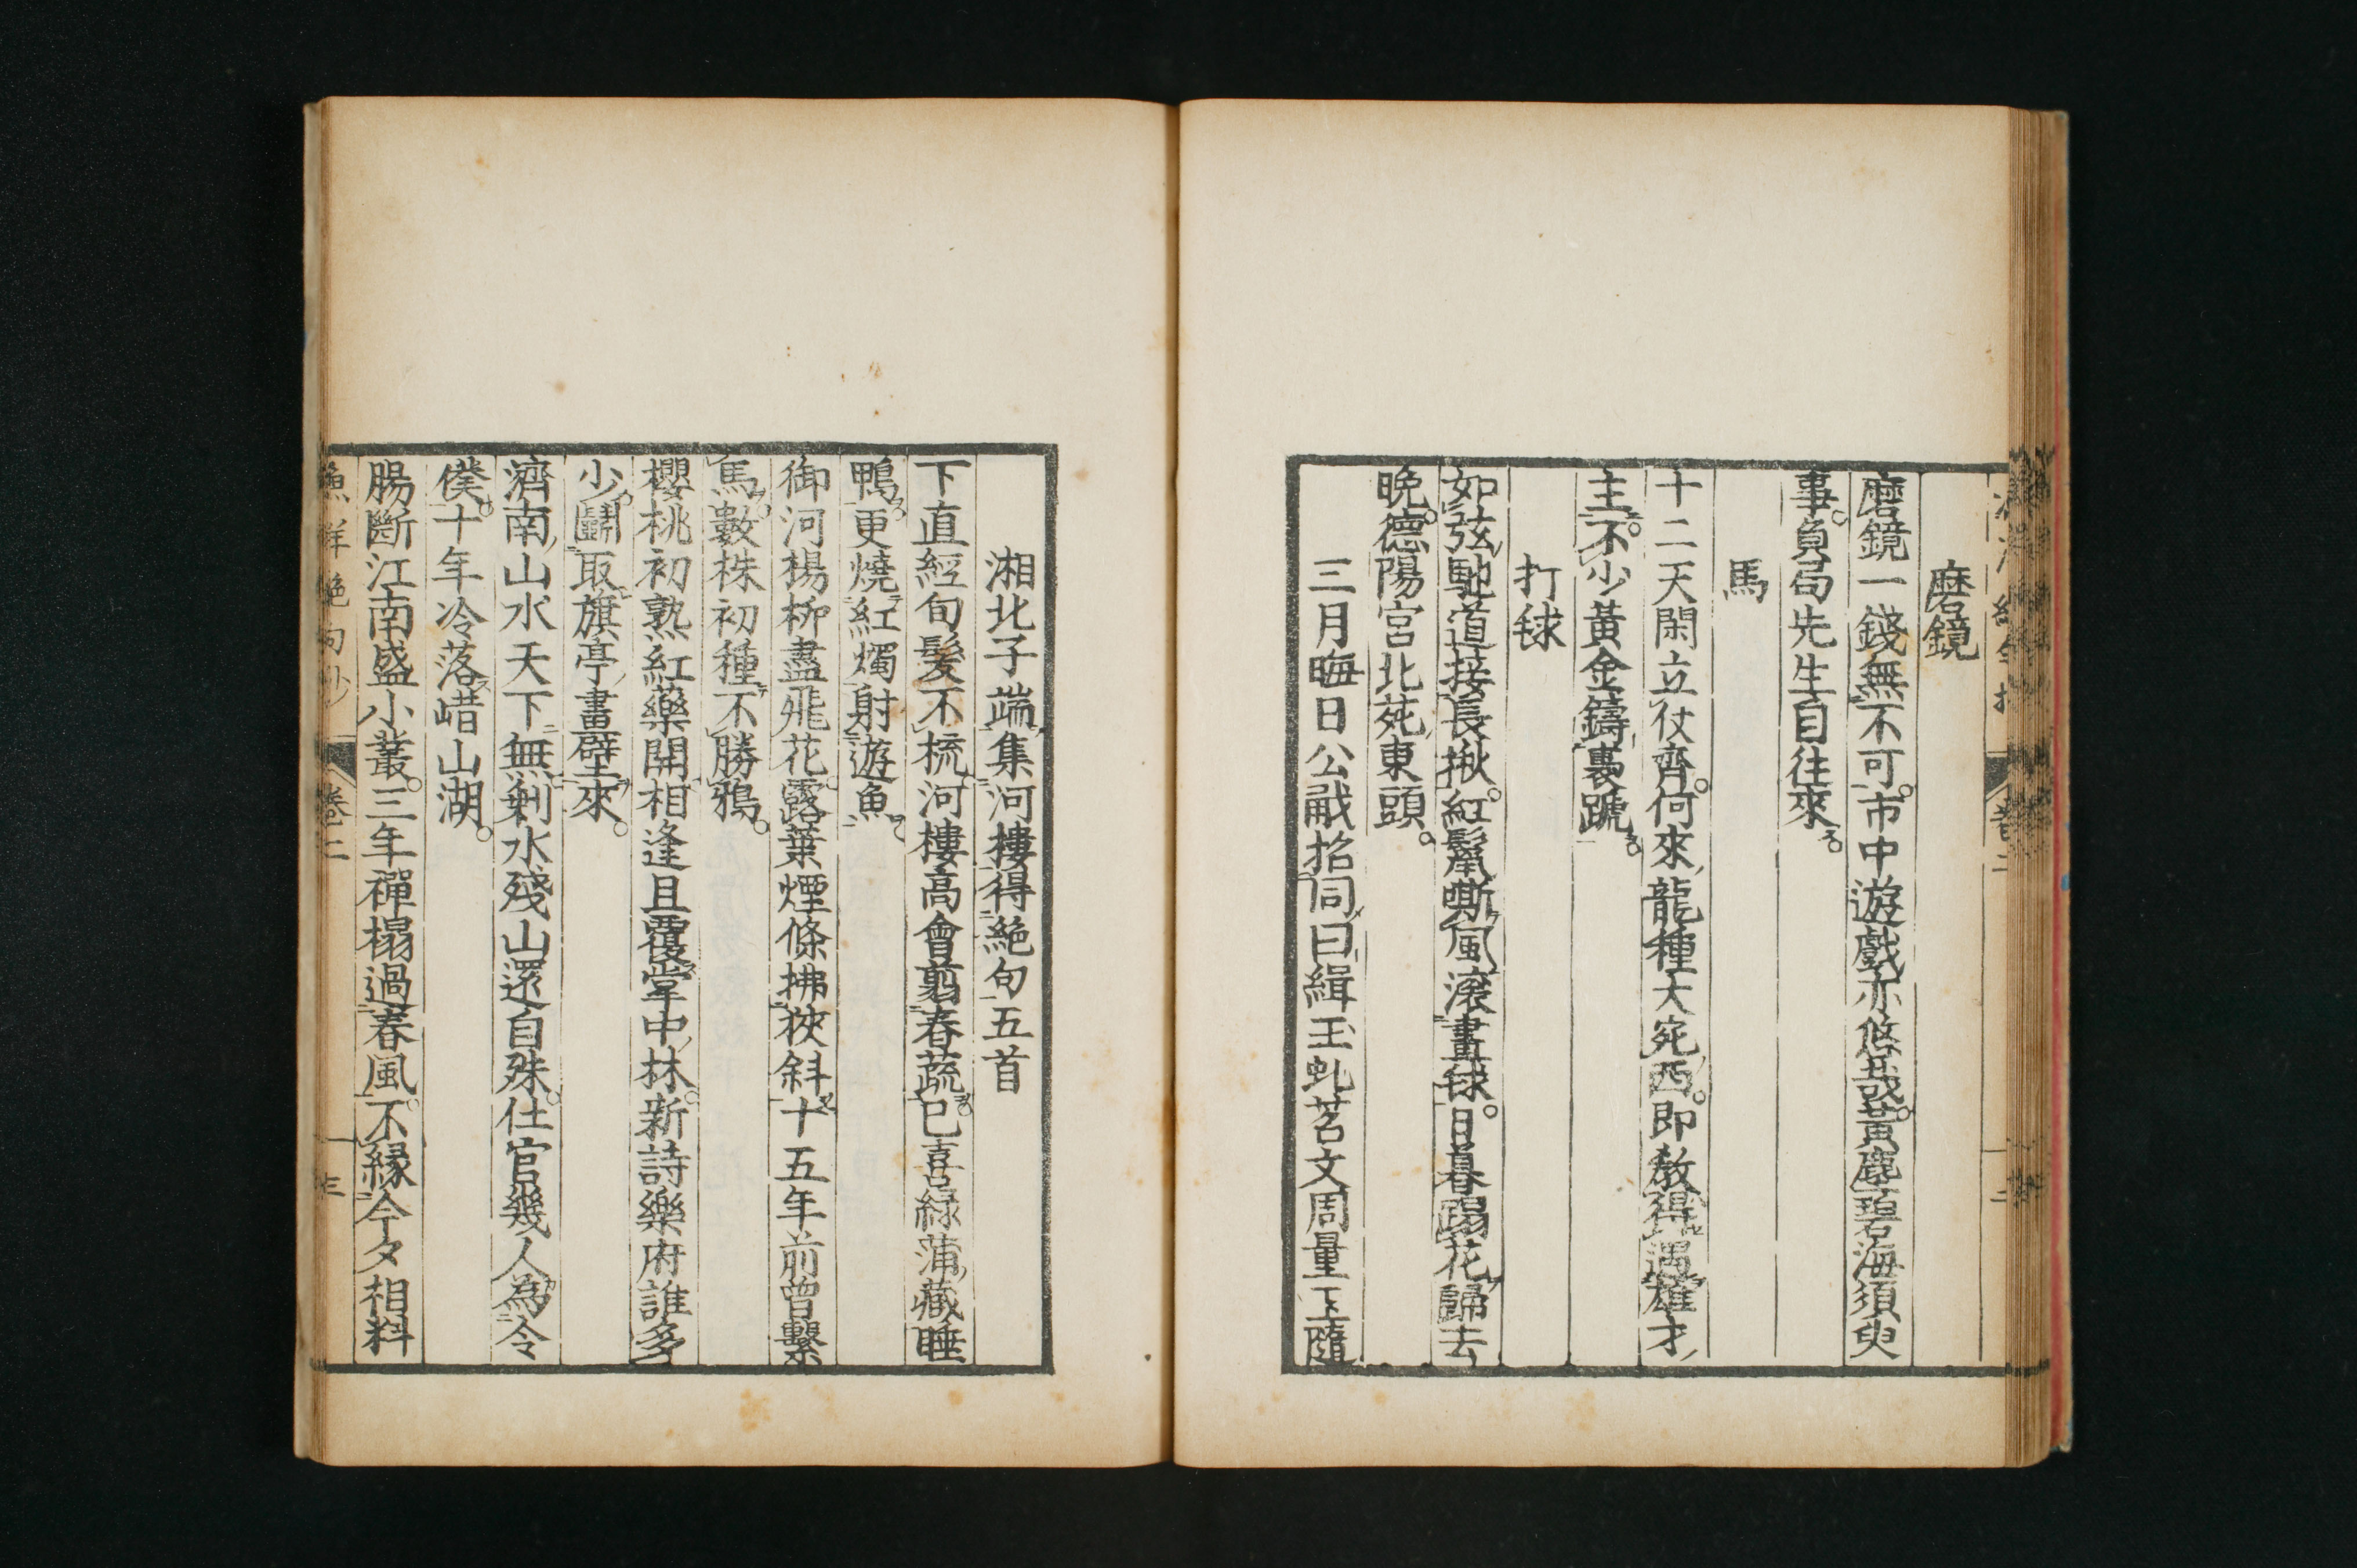 磨鏡
磨鏡一錢無不可市中遊戲亦悠哉黃塵碧海須臾
事負局先生自往來
馬
十二天閑立仗齊何來龍種大宛西即教得遇雄才
主不少黃金鑄褭蹏
打毬
如弦馳道接長楸紅鬣嘶風滾畫毬日暮踢花歸去
晩德陽宮北苑東頭
三月晦日公㦸招同曰緝玉虬茗文周量玉隨
湘北子端集河樓得絶句五首
下直經旬髮不梳河樓高會翦春蔬已喜綠蒲藏睡
鴨更燒紅燭射遊魚
御河楊柳盡飛花露葉煙條拂狹斜十五年前曾繫
馬數株初種不勝鴉
櫻桃初熟紅藥開相逢且覆掌中杯新詩樂府誰多
少鬭取旗亭畫壁來
濟南山水天下無剩水殘山還自殊仕官幾人為冷
僕十年冷落㟙山湖
腸斷江南盛小叢三年禪榻過春風不緣今夕相料
漁洋絶句抄 卷二 三